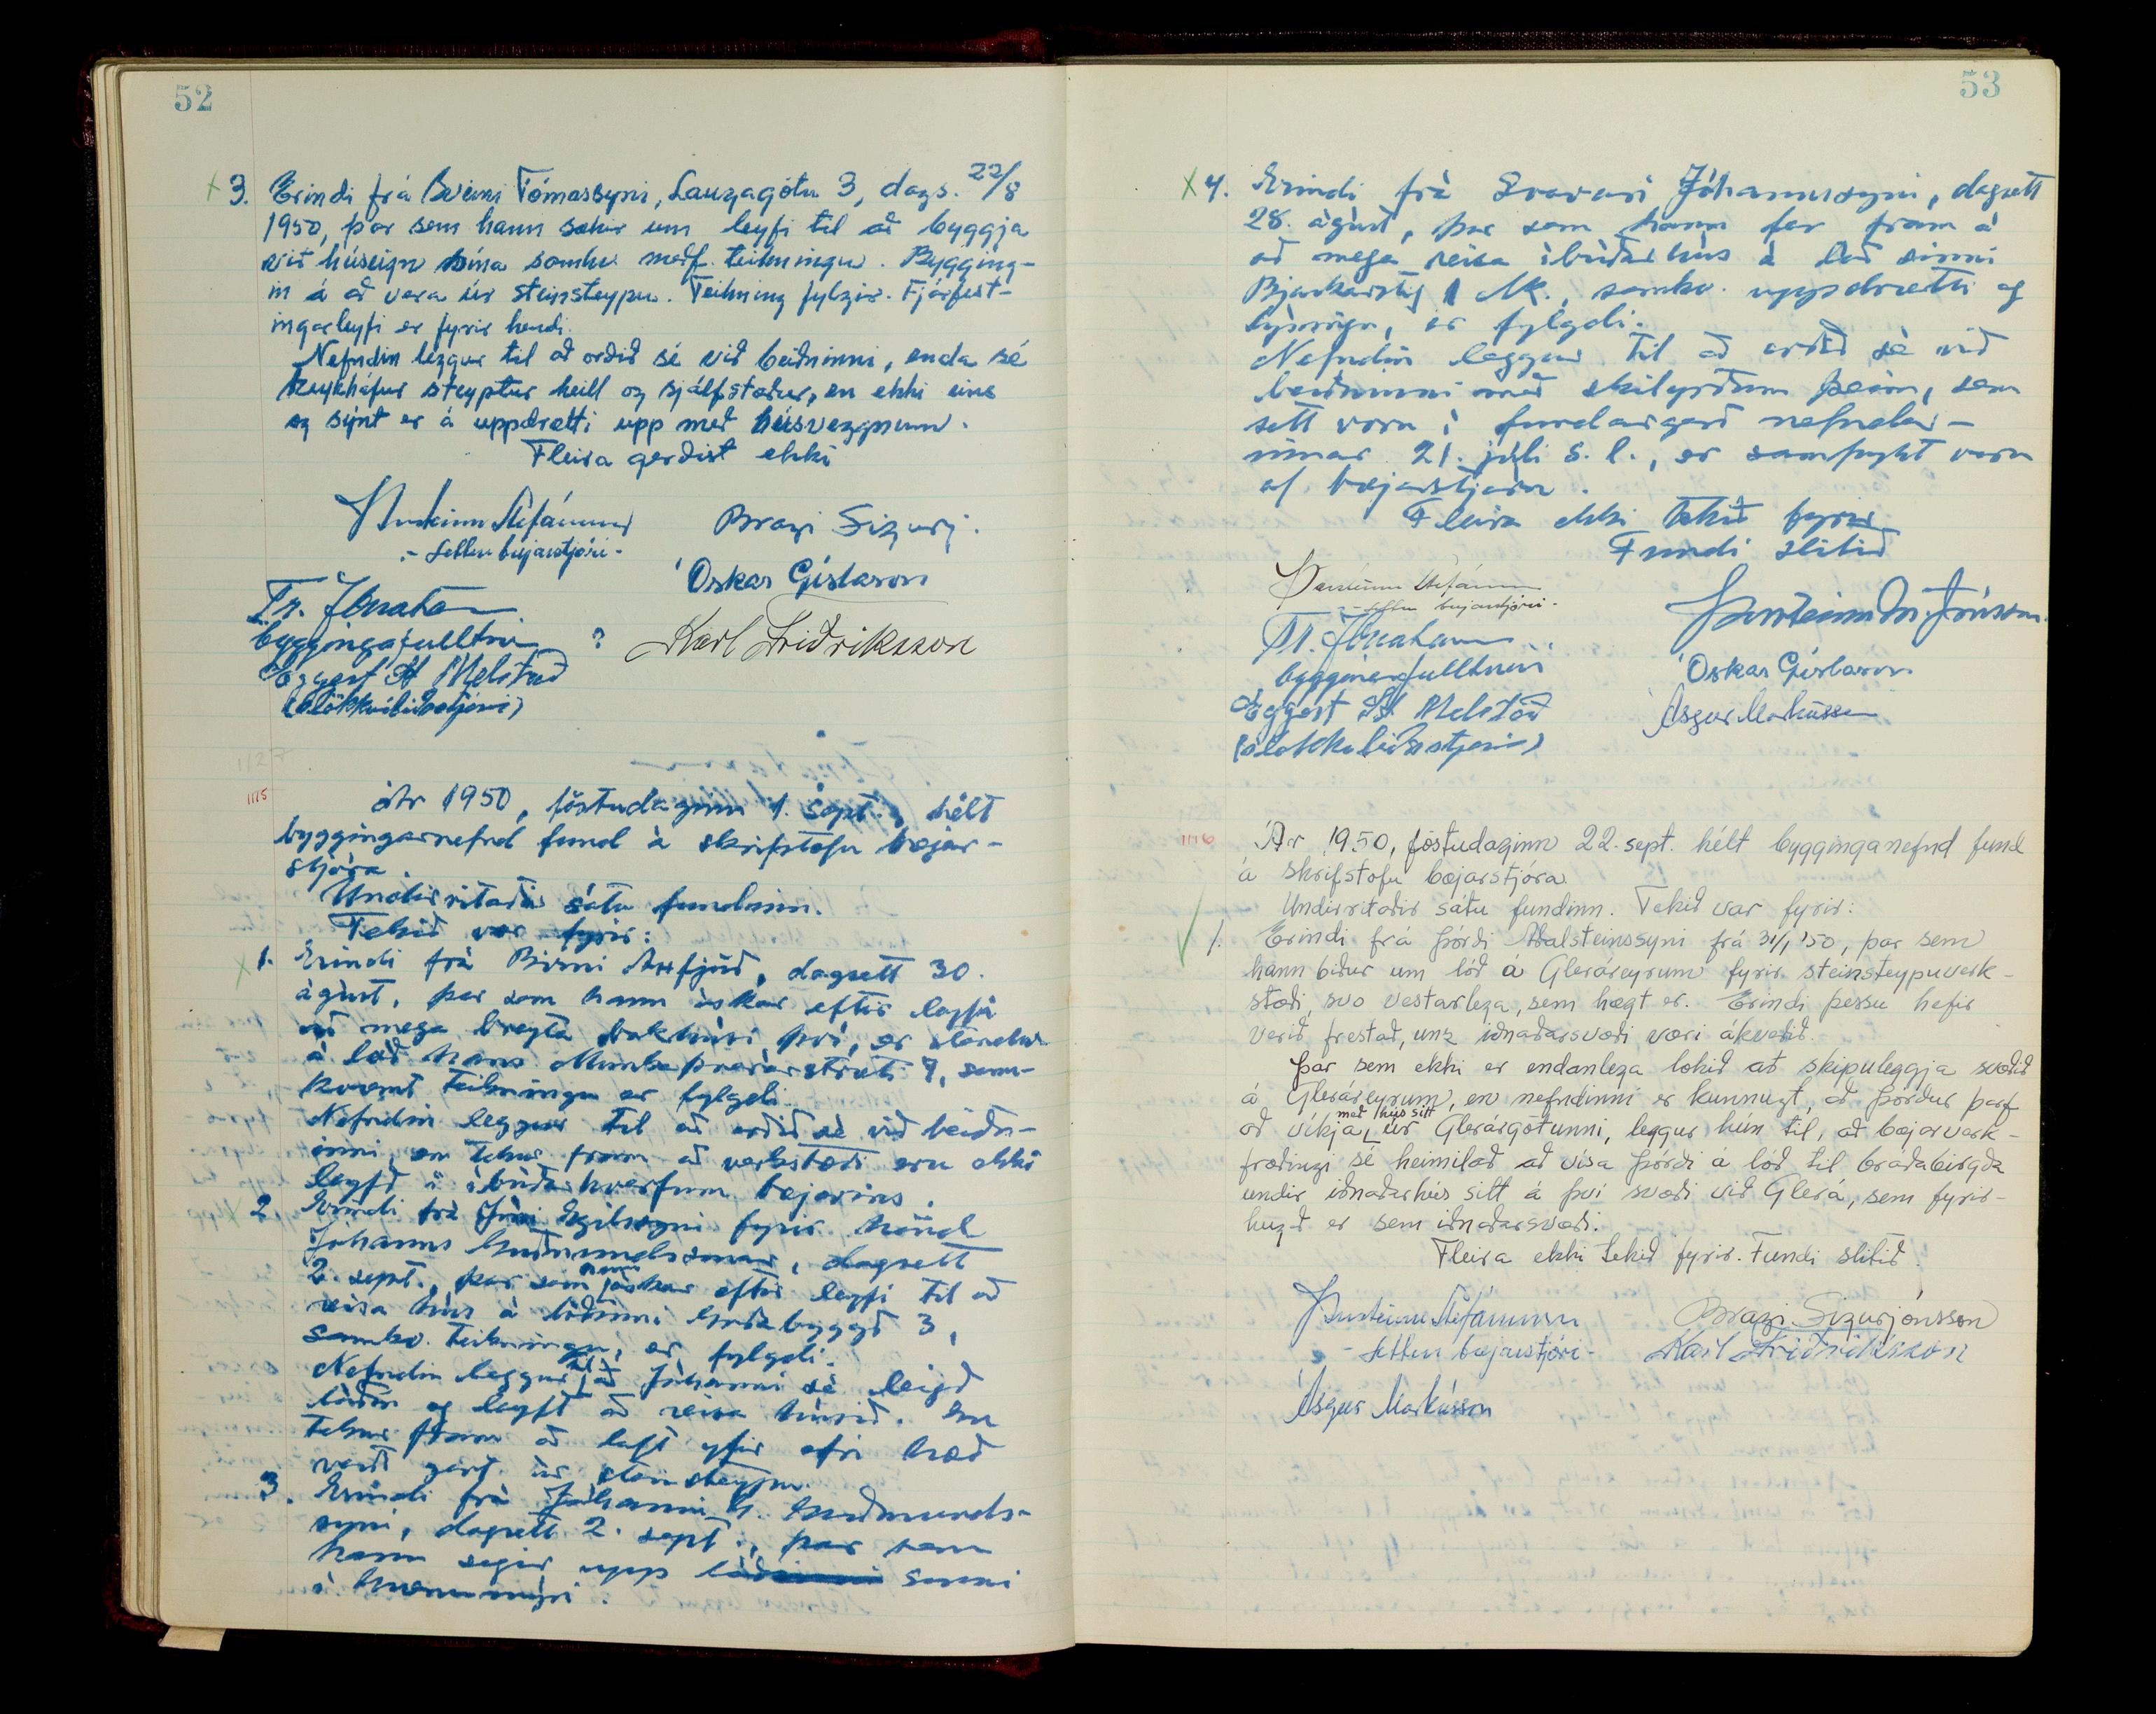 52
3. Erindi frá Sveini Tómassyni, Laugagötu 3, dags. 22/8
1950, þar sem hann sækir um leyfi til að byggja
við húseign sína samkv. meðf. teikningu. Bygging-
in á að vera úr steinsteypu. Teikning fylgir. Fjárfest-
ingarleyfi er fyrir hendi.
Nefndin leggur til að orðið sé við beiðninni, enda sé
reykháfur steyptur heill og sjálfstæður, en ekki eins
og sýnt er á uppdrætti upp með húsveggnum.
Fleira gerðist ekki
Steinn Stefánsson
- settur bæjarstjóri -
Bragi Sigurj.
Óskar Gíslason
Tr. Jónatansson
byggingafulltrúi
? Karl Friðriksson
Eggert St Melstað
(slökkviliðsstjóri)
1127
1115
Ár 1950, föstudaginn 1. sept., hélt
byggingarnefnd fund á skrifstofu bæjar-
stjóra.
Undirritaðir sátu fundinn.
Tekið var fyrir:
1. Erindi frá Birni Arnfjörð, dagsett 30.
ágúst, þar sem hann óskar eftir leyfi
að mega breyta bakhúsi því, er stendur
á lóð hans Munkaþverárstræti 7, sam-
kvæmt teikningu er fylgdi.
Nefndin leggur til að orðið sé við beiðn-
inni, en tekur fram að verkstæði eru ekki
leyfð í íbúðarhverfum bæjarins.
2. Erindi frá Jóni Egilssyni fyrir hönd
Jóhanns Guðmundssonar, dagsett
2. sept., þar sem hann óskar eftir leyfi til að
reisa hús á lóðinni Goðabyggð 3,
samkv. teikningu, er fylgdi.
Nefndin leggur til að Jóhanni sé leigð
lóðin og leyft að reisa húsið. En
tekur fram að loft yfir efri hæð
verði gert úr steinsteypu.
3. Erindi frá Jóhanni G. Guðmunds-
syni, dagsett 2. sept., þar sem
hann segir upp lóðinni sinni
í
53
4. Erindi frá Svavari Jóhannssyni, dagsett
28. ágúst, þar sem hann fer fram á
að mega reisa íbúðarhús á lóð sinni
Bjarkarstíg 1 Ak., samkv. uppdrætti og
lýsingu, er fylgdi.
Nefndin leggur til að orðið sé við
beiðninni með skilyrðum þeim, sem
sett voru í fundargerð nefndar-
innar 21. júlí s.l., er samþykt voru
af bæjarstjórn.
Fleira ekki tekið fyrir
Fundi slitið
Steinn Stefánsson
- settur bæjarstjóri -
Þorsteinn M. Jónsson.
Tr. Jónatansson
byggingafulltrúi
Óskar Gíslason
Eggert St. Melstað
(slökkviliðsstjóri)
Ásgeir Markússon
1116
Ár 1950, föstudaginn 22. sept. hélt bygginganefnd fund
á skrifstofu bæjarstjóra.
Undirritaðir sátu fundinn. Tekið var fyrir:
1. Erindi frá Þórði Aðalsteinssyni frá 31/1 '50, þar sem
hann biður um lóð á Gleráreyrum fyrir steinsteypuverk-
stæði, svo vestarlega, sem hægt er. Erindi þessu hefir
verið frestað, unz iðnaðarsvæði væri ákveðið.
Þar sem ekki er endanlega lokið að skipuleggja svæðið
á Gleráreyrum, en nefndinni er kunnugt, að Þórður þarf
að víkja með hús sitt úr Glerárgötunni, leggur hún til, að bæjarverk-
fræðingi sé heimilað að vísa Þórði á lóð til bráðabirgða
undir iðnaðarhús sitt á því svæði við Glerá, sem fyrir-
hugað er sem iðnaðarsvæði.
Fleira ekki tekið fyrir. Fundi slitið.
Steinn Stefánsson
- settur bæjarstjóri -
Bragi Sigurjónsson
Karl Friðriksson
Ásgeir Markússon